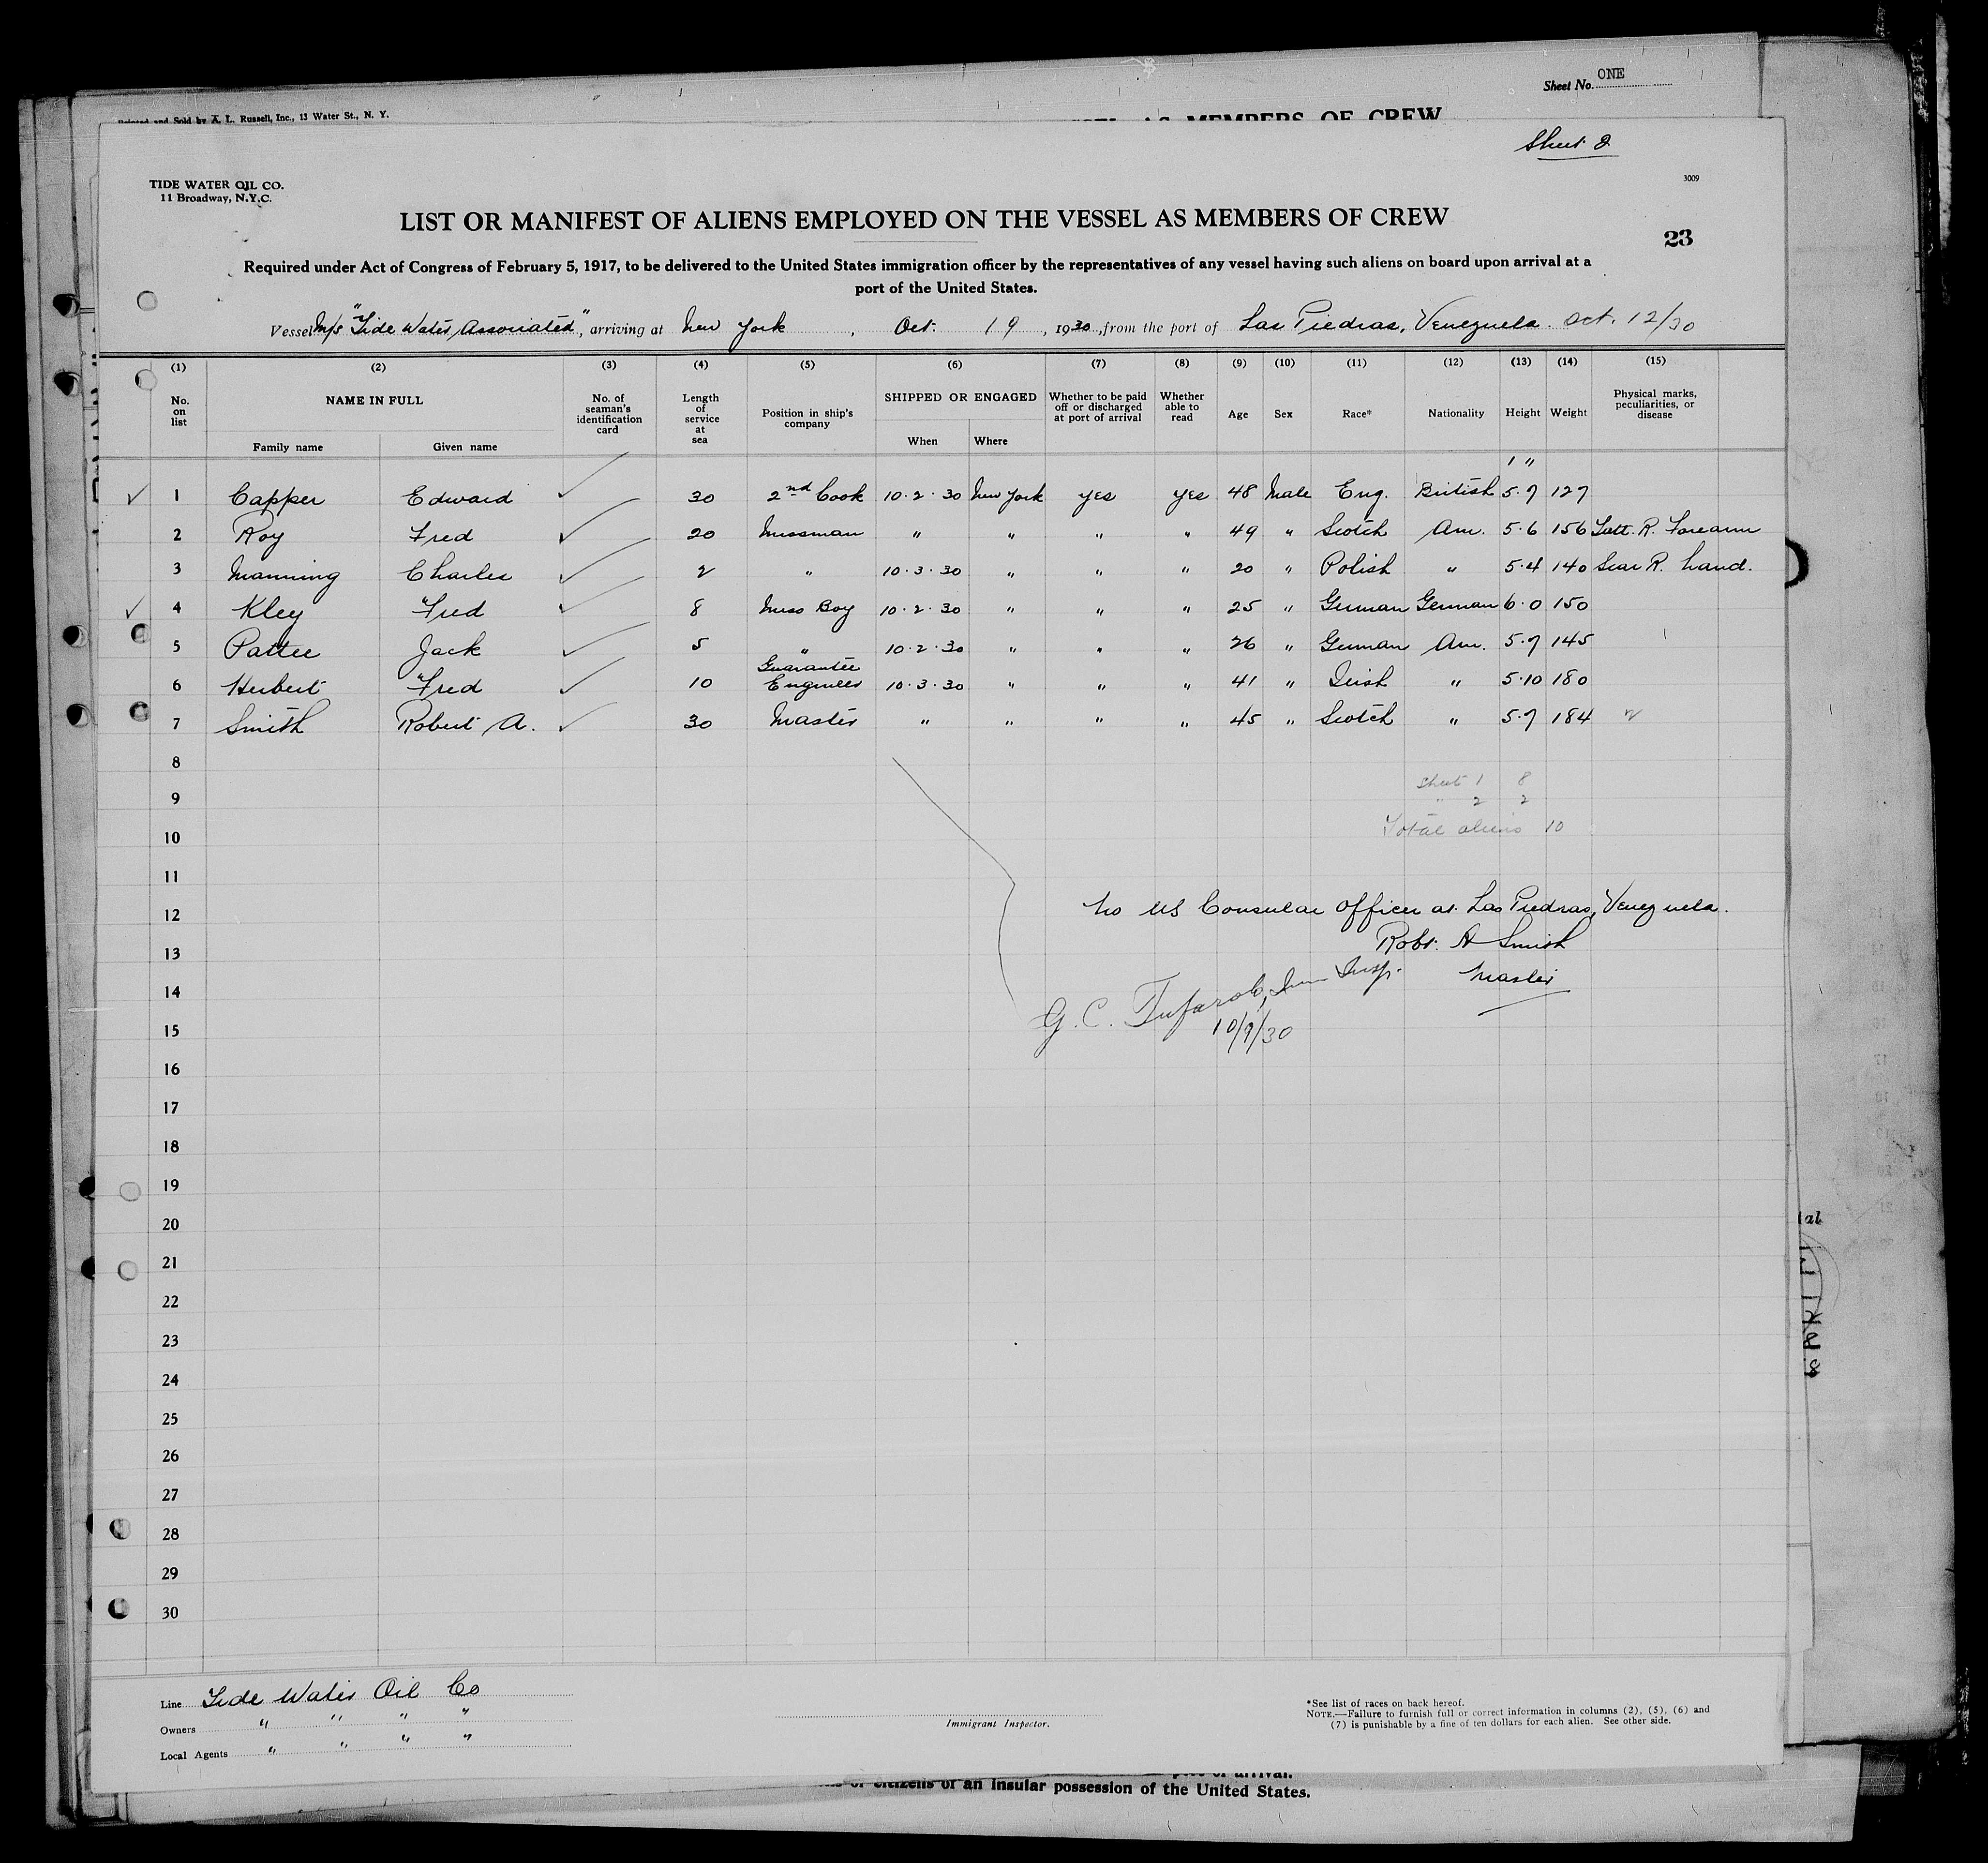 Sheet No. ONE
Printed and Sold by A. L. Russell, Inc., 13 Water St., N. Y.
AS MEMBERS OF CREW
Sheet 2
TIDE WATER OIL CO.
11 Broadway, N.Y.C.
3009
LIST OR MANIFEST OF ALIENS EMPLOYED ON THE VESSEL AS MEMBERS OF CREW
23
Required under Act of Congress of February 5, 1917, to be delivered to the United States immigration officer by the representatives of any vessel having such aliens on board upon arrival at a
port of the United States.
Vessel M/S "Tide Water Associated", arriving at New York, Oct. 19, 1930, from the port of Las Piedras, Venezuela. Oct. 12/30
(1) (2) (3) (4) (5) (6) (7) (8) (9) (10) (11) (12) (13) (14) (15)
No. on list NAME IN FULL No. of seaman's identification card Length of service at sea Position in ship's company SHIPPED OR ENGAGED Whether to be paid off or discharged at port of arrival Whether able to read Age Sex Race* Nationality Height Weight Physical marks, peculiarities, or disease
Family name Given name When Where
' "
✓ 1 Capper Edward ✓ 30 2nd Cook 10·2·30 New York yes yes 48 Male Eng. British 5·7 127
2 Roy Fred ✓ 20 Messman " " " " 49 " Scotch Am. 5·6 156 Tatt. R. Forearm
3 Manning Charles ✓ 2 " 10·3·30 " " " 20 " Polish " 5·4 140 Scar R. hand.
✓ 4 Kley Fred ✓ 8 Mess Boy 10·2·30 " " " 25 " German German 6·0 150
5 Pattee Jack ✓ 5 " 10·2·30 " " " 26 " German Am. 5·7 145
6 Herbert Fred ✓ 10 Guarantee Engineer 10·3·30 " " " 41 " Irish " 5·10 180
7 Smith Robert A. ✓ 30 Master " " " " 45 " Scotch " 5·7 184
8
Sheet 1 8
9
" 2 2
10
Total aliens 10
11
12 No US Consular Officer at Las Piedras, Venezuela.
13 Robt. A Smith
14 Master
G. C. Tufarolo, Imm Insp.
15 10/9/30
16
17
18
19
20
21
22
23
24
25
26
27
28
29
30
Line Tide Water Oil Co
Owners " " " "
Local Agents " " " "
Immigrant Inspector.
*See list of races on back hereof.
NOTE.—Failure to furnish full or correct information in columns (2), (5), (6) and
(7) is punishable by a fine of ten dollars for each alien. See other side.
port of arrival.
or citizens of an insular possession of the United States.